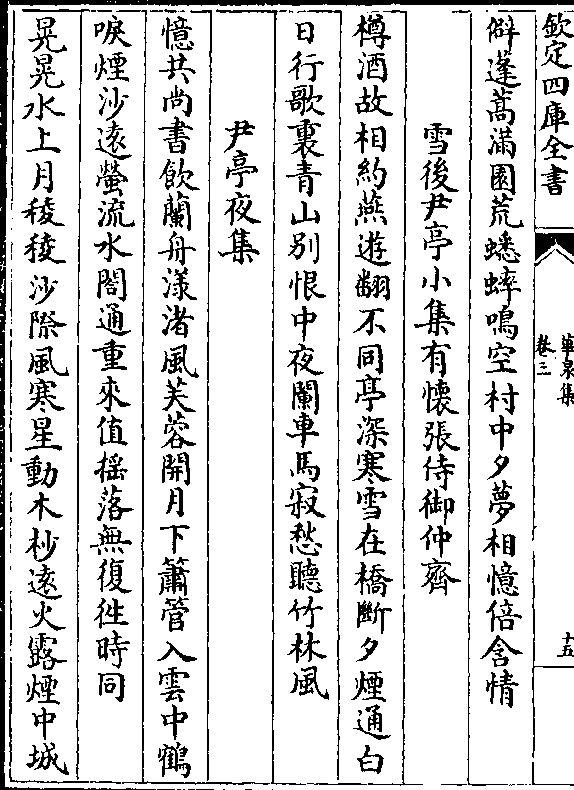 欽定四庫全書
華泉集
卷三
十五
僻蓬蒿滿園荒蟋蟀鳴空村中夕夢相憶倍含情
雪後尹亭小集有懷張侍御仲齊
樽酒故相約燕遊翻不同亭深寒雪在橋斷夕煙通白
日行歌裏青山別恨中夜闌車馬寂愁聽竹林風
尹亭夜集
憶共尚書飲蘭舟漾渚風芙蓉開月下簫管入雲中鶴
唳煙沙遠螢流水閣通重來值搖落無復徃時同
晃晃水上月稜稜沙際風寒星動木杪遠火露煙中城